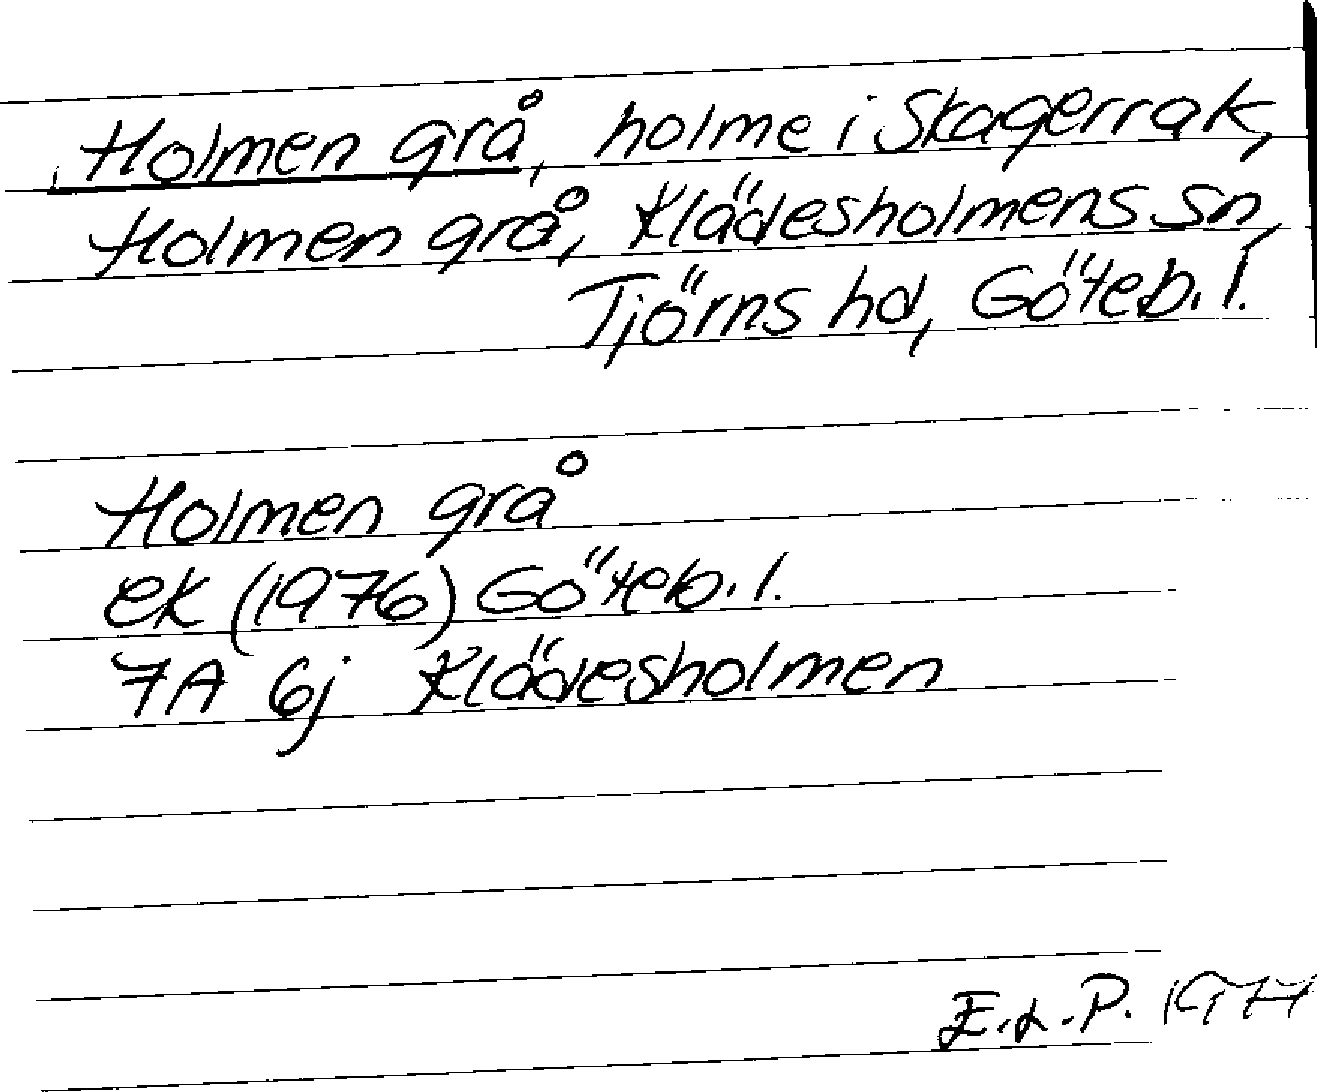 Holmen grå, holme i Skagerrak,
Holmen grå, Klädesholmens sn,
Tjörns hd, Göteb. l.
Holmen grå
ek (1976) Göteb. l.
7A 6j Klädesholmen
E.L.P.